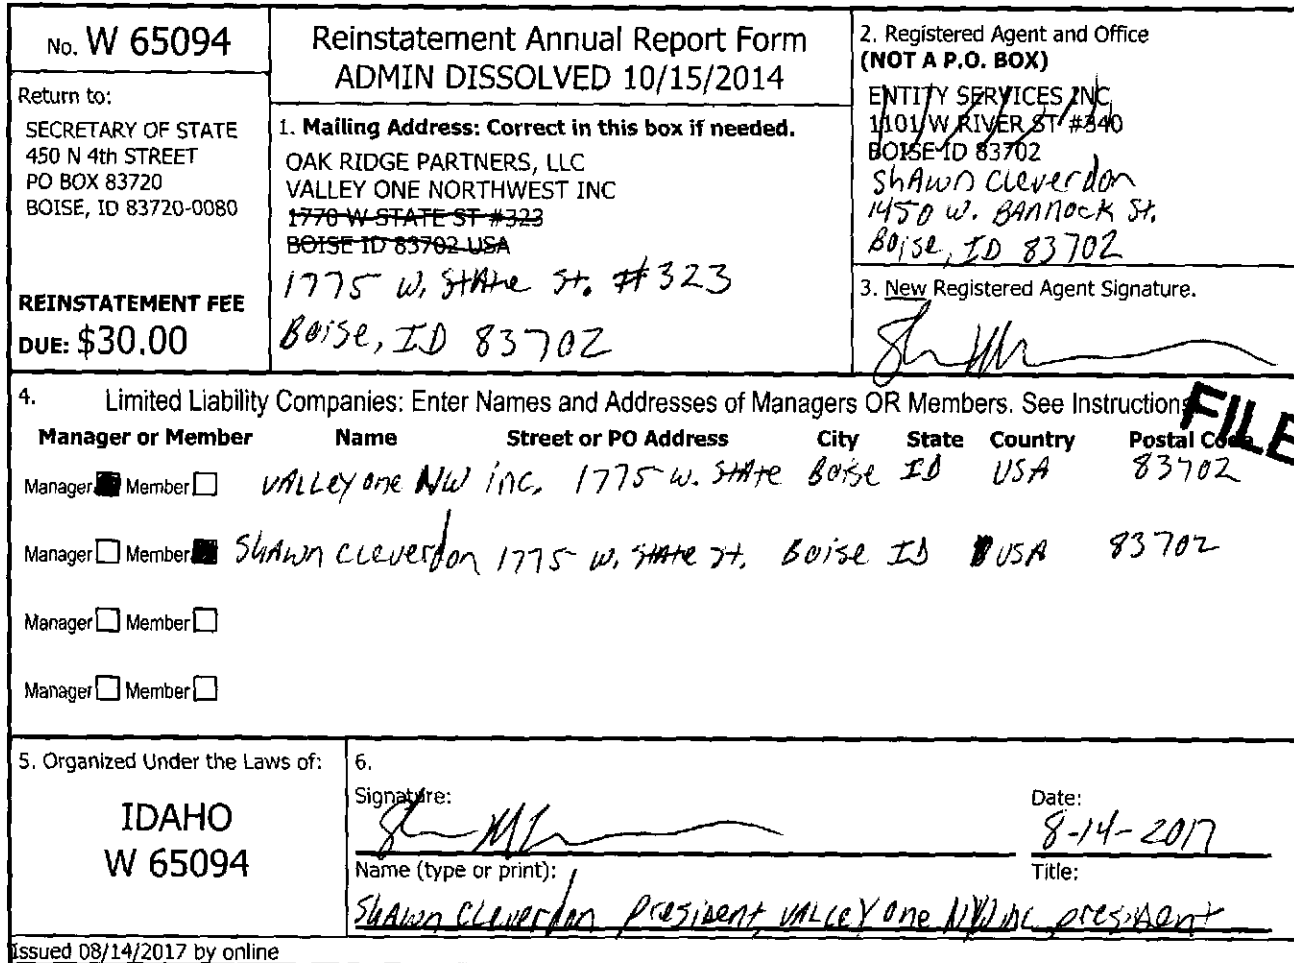 No. W 65094
Return to:
SECRETARY OF STATE
450 N 4th STREET
PO BOX 83720
BOISE, ID 83720-0080
REINSTATEMENT FEE
DUE: $30.00
Reinstatement Annual Report Form
ADMIN DISSOLVED 10/15/2014
1. Mailing Address: Correct in this box if needed.
OAK RIDGE PARTNERS, LLC
VALLEY ONE NORTHWEST INC
1770 W STATE ST #323
BOISE ID 83702 USA
1775 W. State St. #323
Boise, ID 83702
2. Registered Agent and Office
(NOT A P.O. BOX)
ENTITY SERVICES INC
1101 W RIVER ST #340
BOISE ID 83702
Shawn Cleverdon
1450 W. Bannock St.
Boise, ID 83702
3. New Registered Agent Signature.
4. Limited Liability Companies: Enter Names and Addresses of Managers OR Members. See Instruction
FILE
Manager or Member Name Street or PO Address City State Country Postal Code
Manager Member Valley one NW inc. 1775 W. State Boise ID USA 83702
Manager Member Shawn Cleverdon 1775 W. State St. Boise ID USA 83702
Manager Member
Manager Member
5. Organized Under the Laws of:
IDAHO
W 65094
6.
Signature:
Date:
8-14-2017
Name (type or print):
Title:
Shawn Cleverdon President, Valley one NW inc president
Issued 08/14/2017 by online